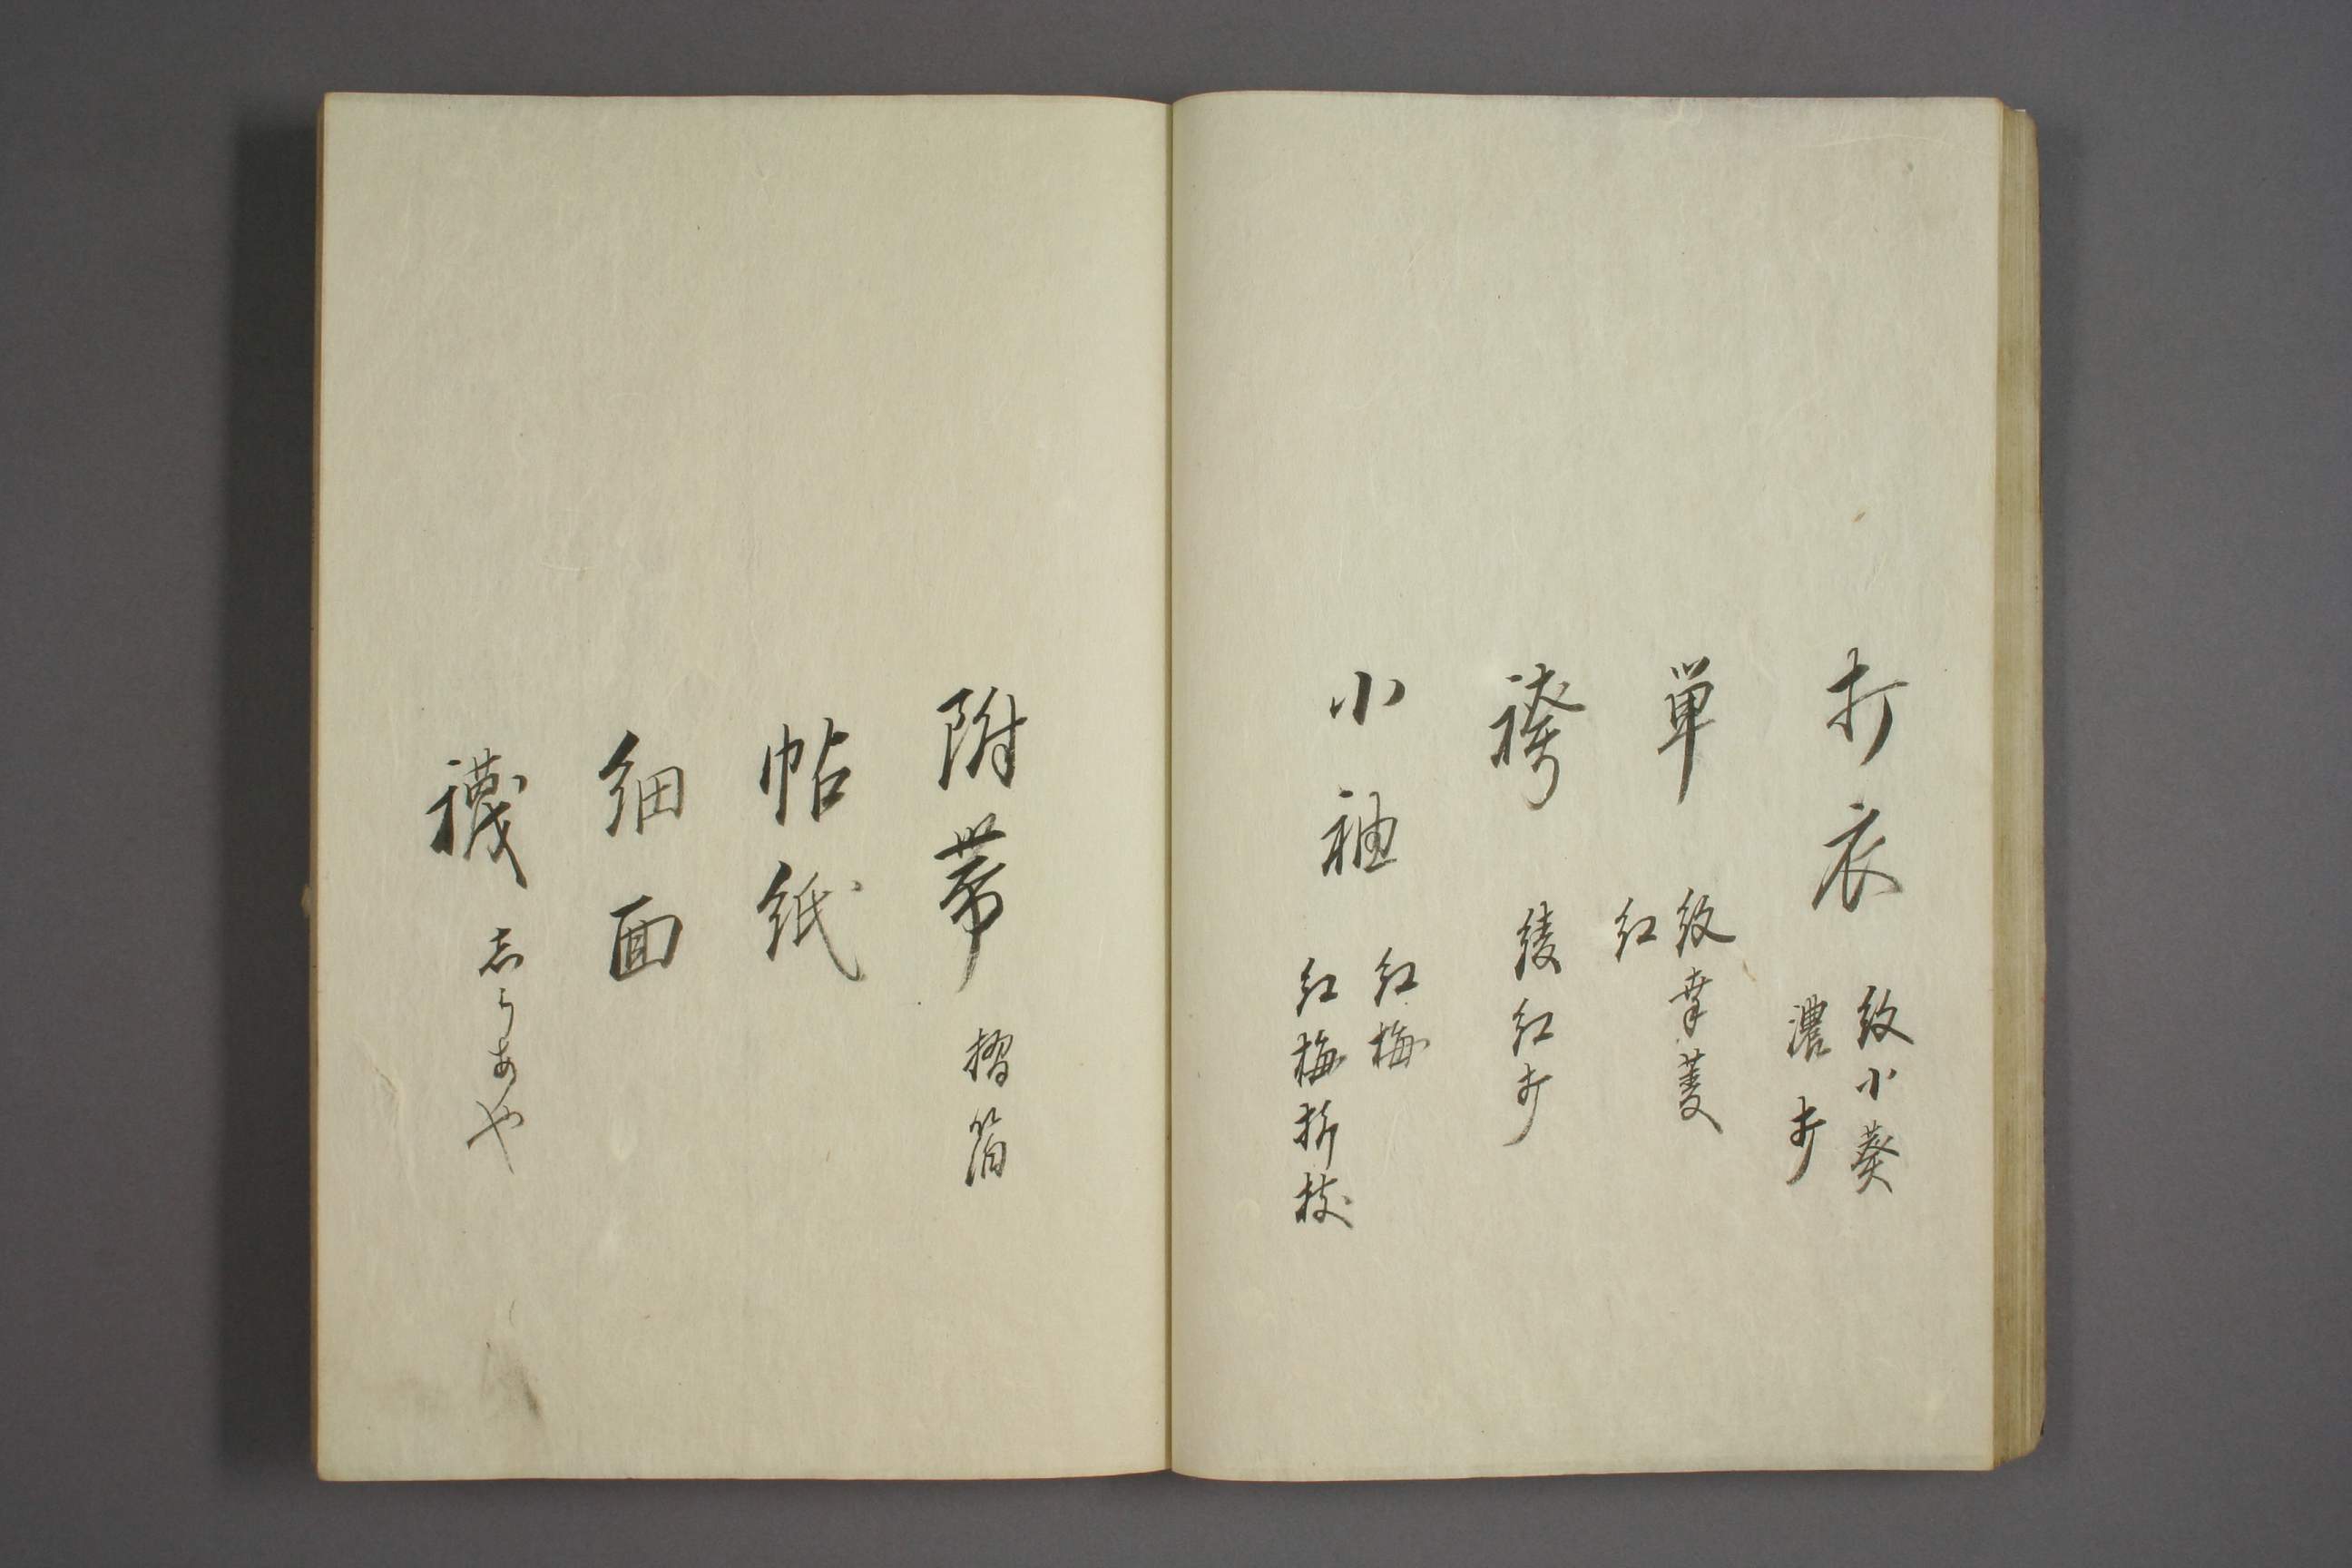 打衣 紋小葵
濃打
単 紋幸菱
紅
袴 綾紅打
小袖 紅梅
紅梅折枝
附帯 摺箔
帖紙
細面
襪 志らあや